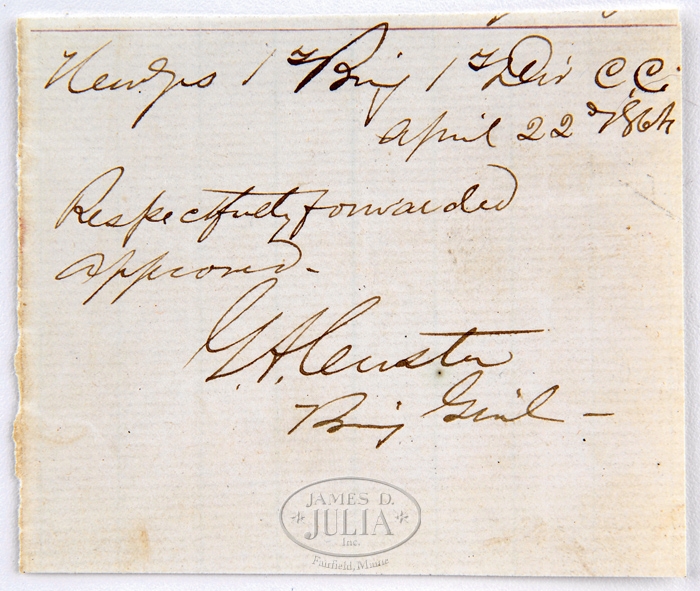 Headqrs 1st Brig 1st Div C.C.
April 22d 1864
Respectfully forwarded
approved.
G.A. Custer
Brig Genl -
JAMES D.
JULIA
Inc.
Fairfield, Maine